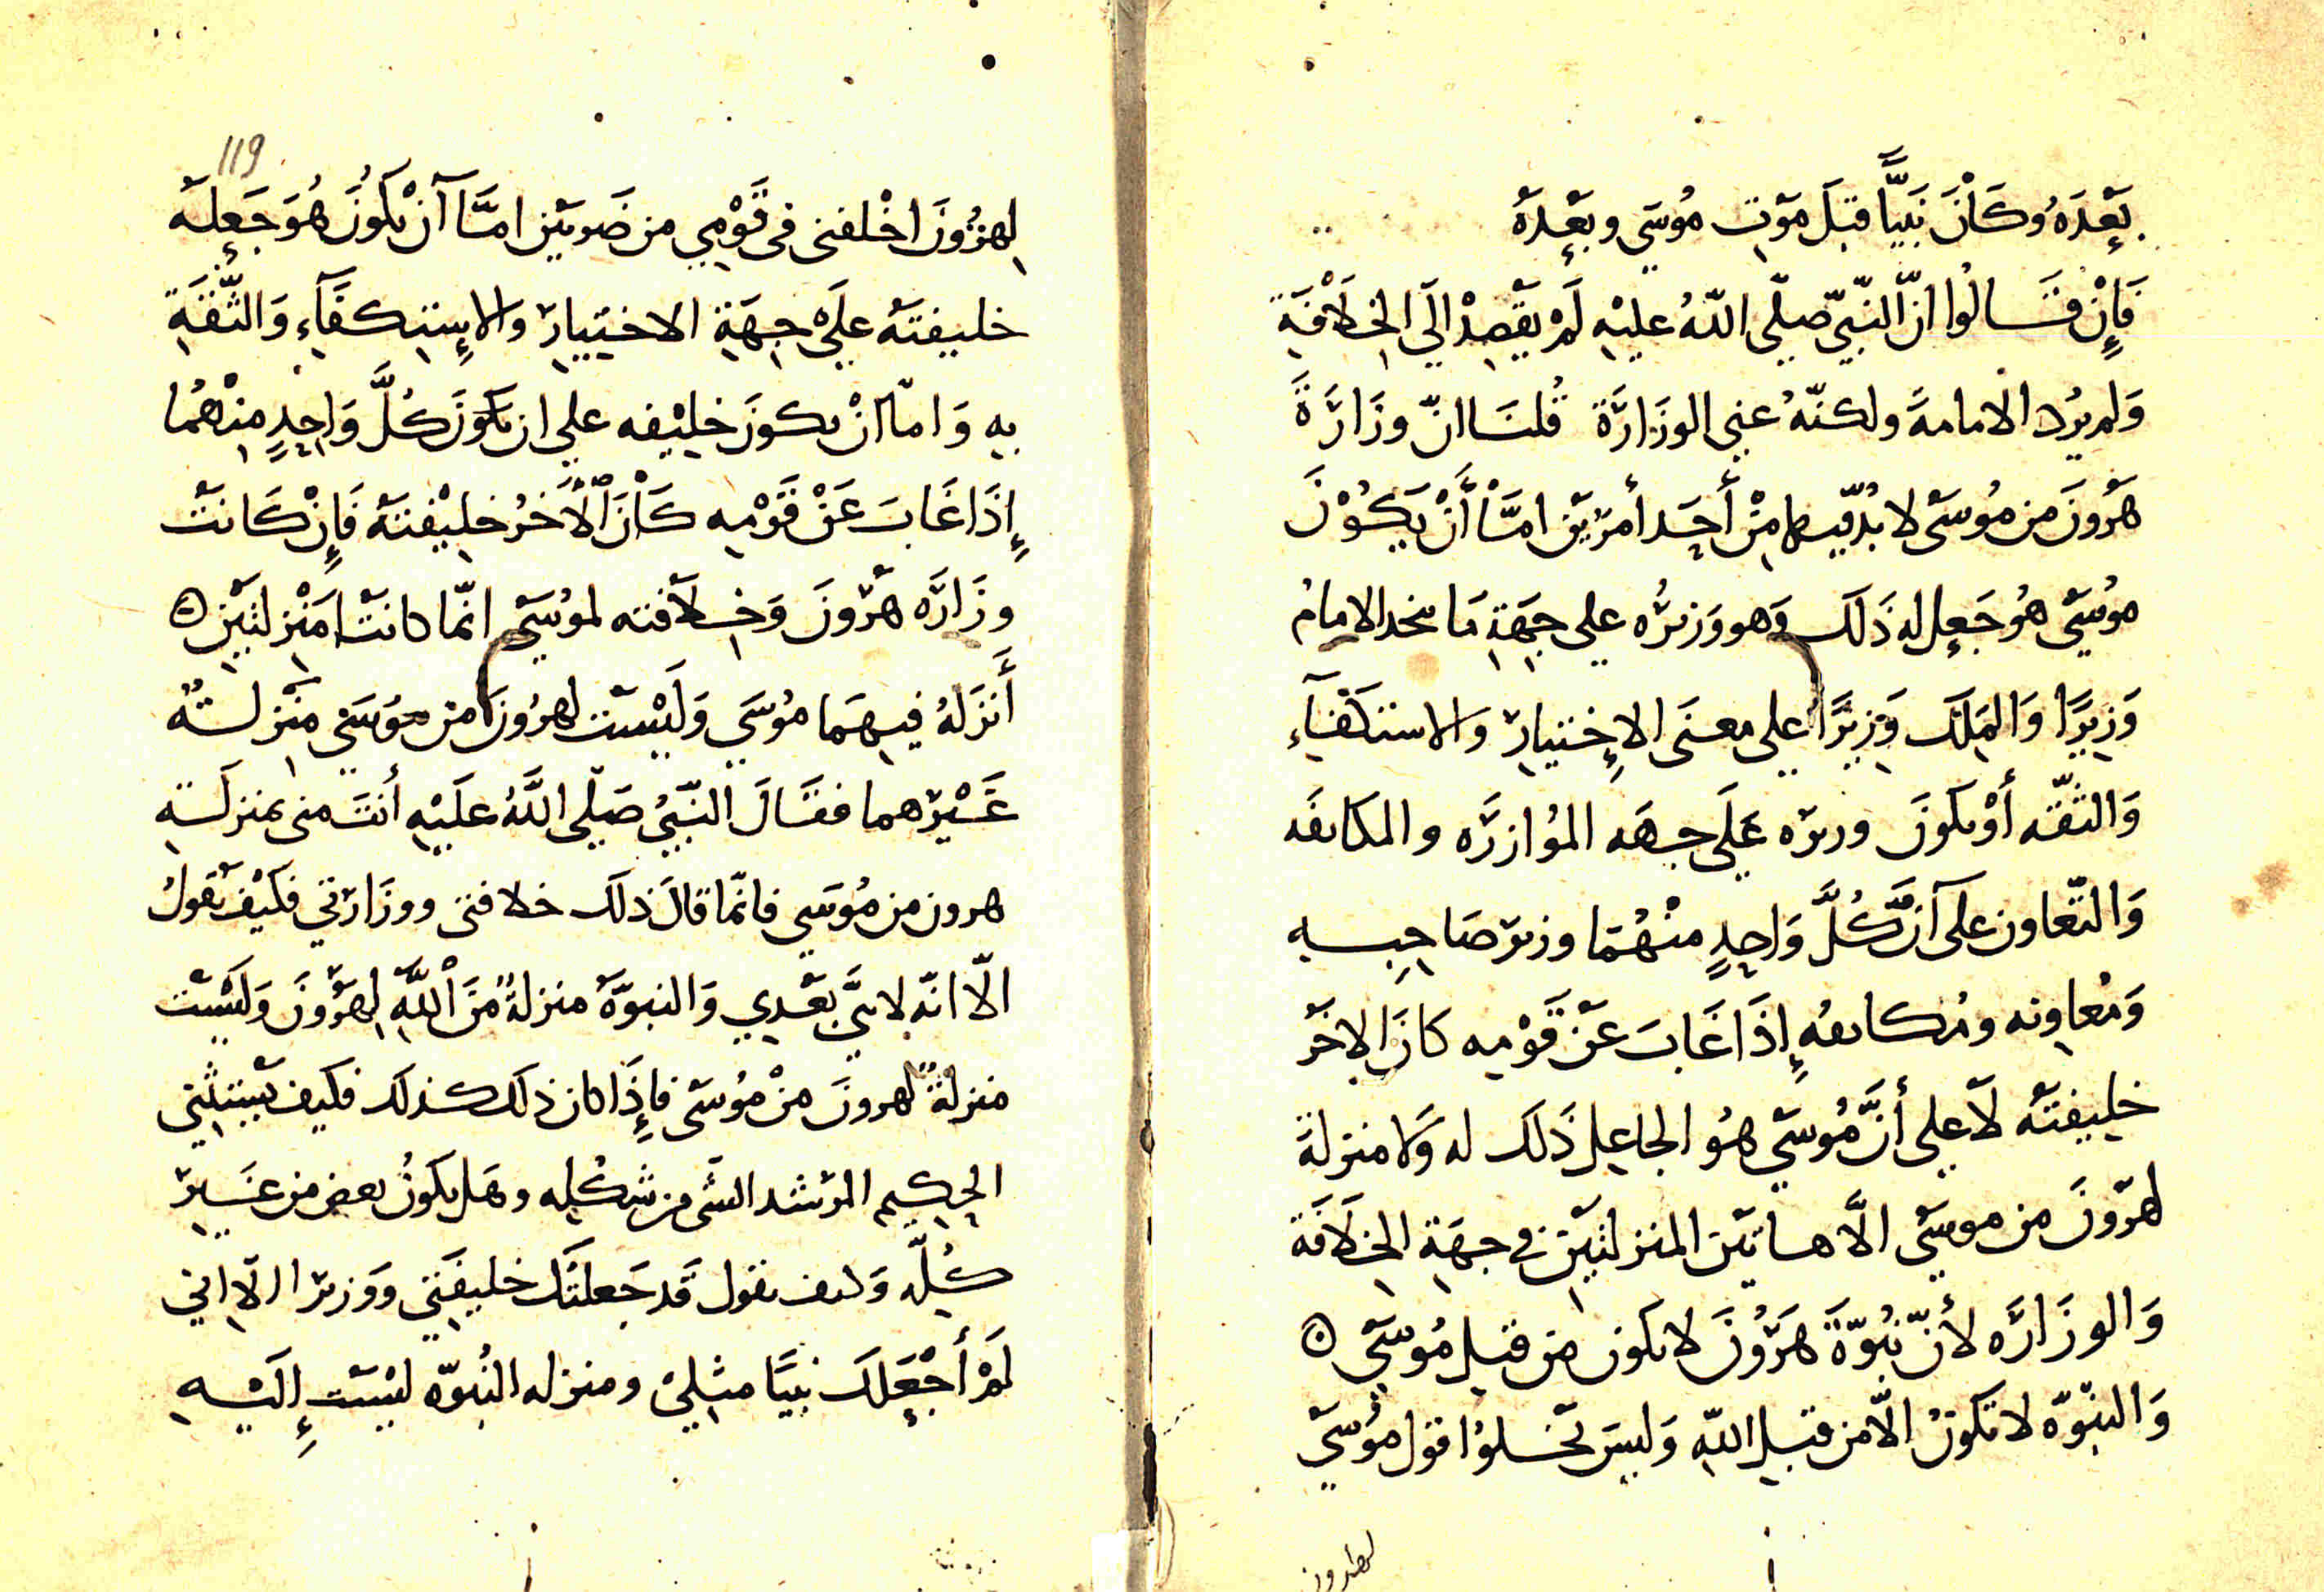 بَعْدَهُ وَكَانَ نَبِيًّا قبلَ مَوْتِ مُوسَي وبَعْدَهُ
فَإِنْ قَالُوا انّ النّبيّ صلّي اللّهُ عليْهِ لَمْ يَقْصِدْ الَي الخِلَافَةِ
وَلم يرُد الامامةَ ولكنّهُ عني الوزَارَة قُلنَا انّ وزَارَةَ
هَرُونَ من مُوسَى لا بُدّ فيها مِنْ أَحَد أمرَيْن امَّا أَنْ يَكُوْنَ
مُوسَي هُو جَعل له ذَلكَ وَهو وَزيرُه علي جِهَةِ مَا يتخد الامامُ
وَزِيرًا وَالمَلِكُ وَزِيرًا علي معنَى الإِختيارِ والاستكفَاءِ
وَالثقّه أَوْ يكونَ وزيره عَلَي جهَه المُوازرَه والمكانفَه
وَالتّعاون علي آنّ كُلَّ وَاحِدٍ منْهُمَا وزير صَاحِبه
وَمُعاوِنه ومُكانفُه إِذَا غَابَ عَنْ قَوْمِه كانَ الاخَر
خليفتَهُ لَا علي أنَّ مُوسَي هُو الجاعل ذَلكَ له وَلا منزلةَ
لهرَونَ من موسَي الّا هاتَيْن المنزلتَيْن في جهَةِ الخِلَافَة
وَالوزَارَه لأَنّ نبُوّةَ هَرُونَ لا تكون من قبلِ مُوسَي ۞
وَالنبّوّه لا تكونُ الّا من قبلِ اللّهِ وَليسَ تخلوا قول مُوسَي
لهرون
119
لِهرُونَ اخْلفنى فى قَوْمِي من ضَربَيْن امَّا آنْ يكُونَ هُوَ جَعلَهُ
خليفتَهُ علَي جِهَةِ الاختيارِ والاسِتكفَآءِ وَالثّقَةِ
بهِ وَامّا انْ يكونَ خليْفه علي ان يكونَ كُلَّ وَاحِدٍ منْهُمَا
إِذَا غَابَ عَنْ قَوْمِه كَانَ الْآخَرُ خلِيْفتَهُ فَإِنْ كَانَتْ
وزَارَه هَرُونَ وَخِلَافته لموُسَي انّما كانتْ مَنْزلتَيْن ۞
أَنزَلهُ فيهِمَا موُسَي وَلَيْسَت لهرُونَ من موُسَي منْزلتُهُ
غَيْرَهما فقَالَ النّبيُّ صَلّي اللَّهُ علَيْهِ أَنتَ منى بمنزلَتهِ
هرون من مُوسَي فانّما قالَ ذلكَ خلافتى ووزَارَتي فكَيْفَ يَقولُ
الّا انّه لا نبيَّ بَعْدِي وَالنبوّهُ منزلةً مِّنَ اللَّهِ لِهرُونَ وَلَيْسَت
منزلةً لهرونَ منْ مُوسَى فإِذَا كان ذلكَ كذلكَ فكيف يَسْتثني
الحِكيم المرْشد الشى من شكْلِه وهَل يكونُ بعض من غَيرِ
كُلّهِ وَكيف نقول قَد جَعلتُكَ خليفَتي وَوَزيرا الّا اني
لَمْ أَجْعَلكَ نبيًّا مثِلي ومنزله النُبوّه ليْسَت إِلَيْهِ